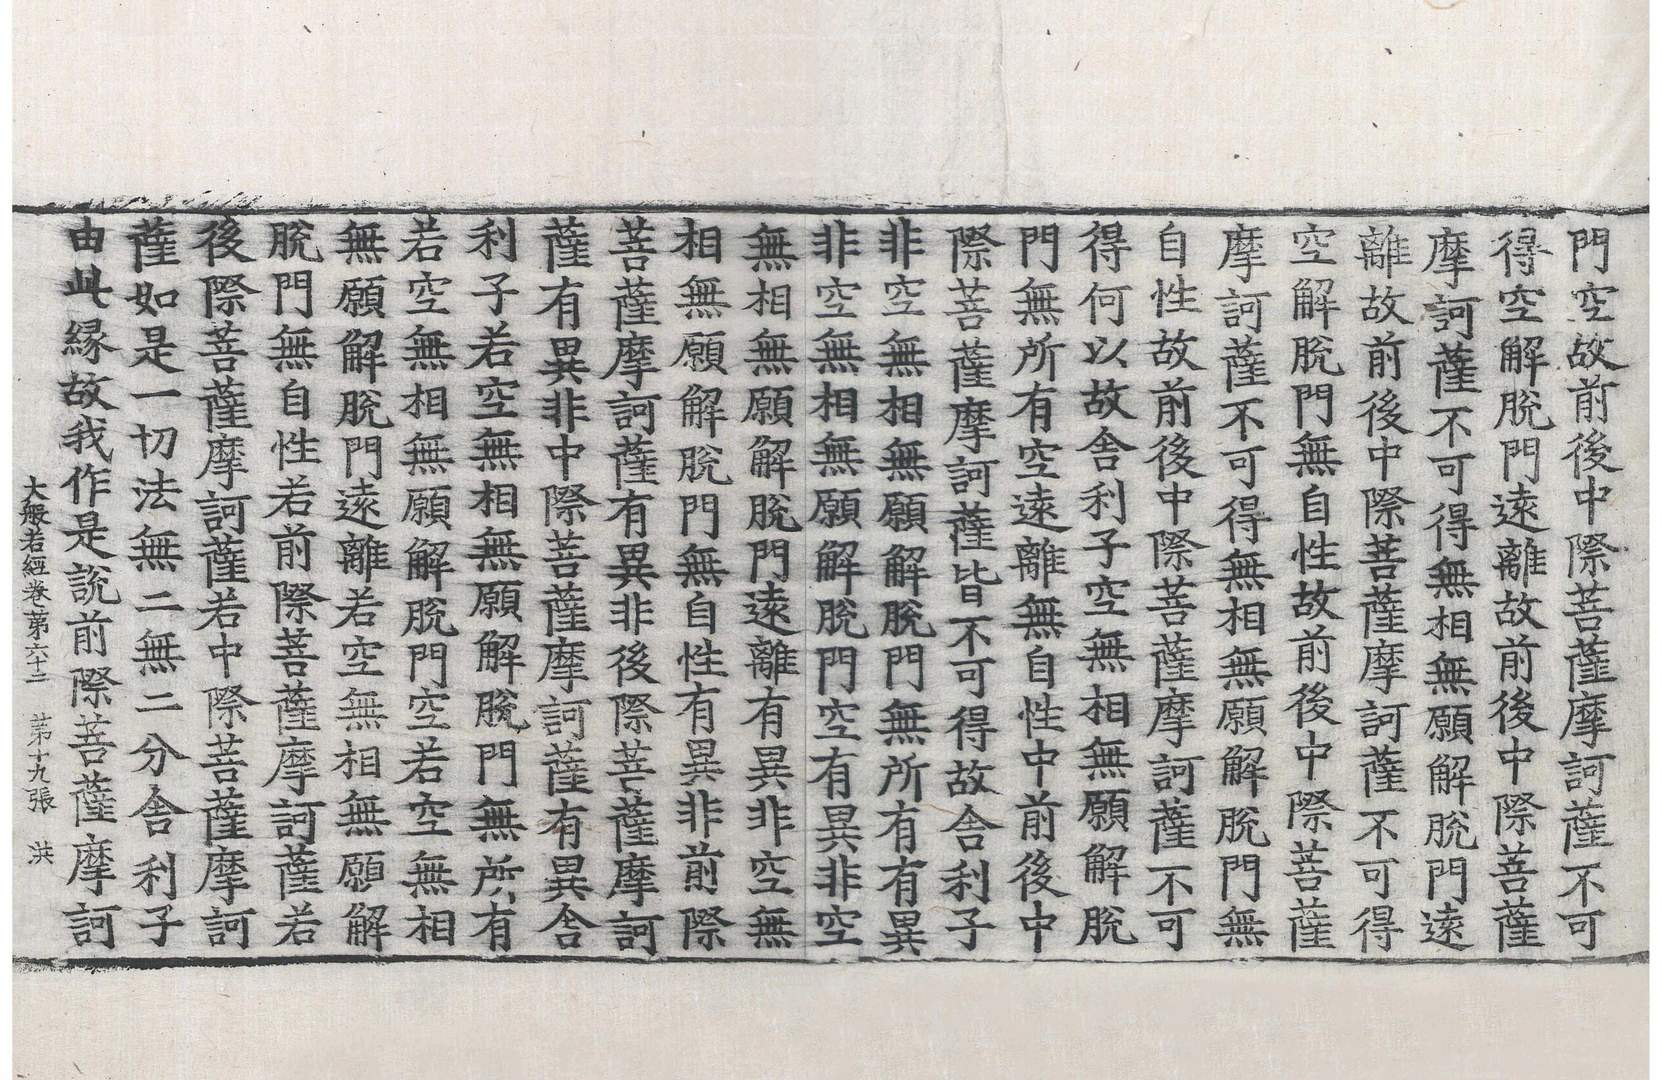 門空故前後中際菩薩摩訶薩不可
得空解脫門遠離故前後中際菩薩
摩訶薩不可得無相無願解脫門遠
離故前後中際菩薩摩訶薩不可得
空解脫門無自性故前後中際菩薩
摩訶薩不可得無相無願解脫門無
自性故前後中際菩薩摩訶薩不可
得何以故舍利子空無相無願解脫
門無所有空遠離無自性中前後中
際菩薩摩訶薩皆不可得故舍利子
非空無相無願解脫門無所有有異
非空無相無願解脫門空有異非空
無相無願解脫門遠離有異非空無
相無願解脫門無自性有異非前際
菩薩摩訶薩有異非後際菩薩摩訶
薩有異非中際菩薩摩訶薩有異舍
利子若空無相無願解脫門無所有
若空無相無願解脫門空若空無相
無願解脫門遠離若空無相無願解
脫門無自性若前際菩薩摩訶薩若
後際菩薩摩訶薩若中際菩薩摩訶
薩如是一切法無二無二分舍利子
由此緣故我作是說前際菩薩摩訶
大般若經卷第六十二 第十九張 洪